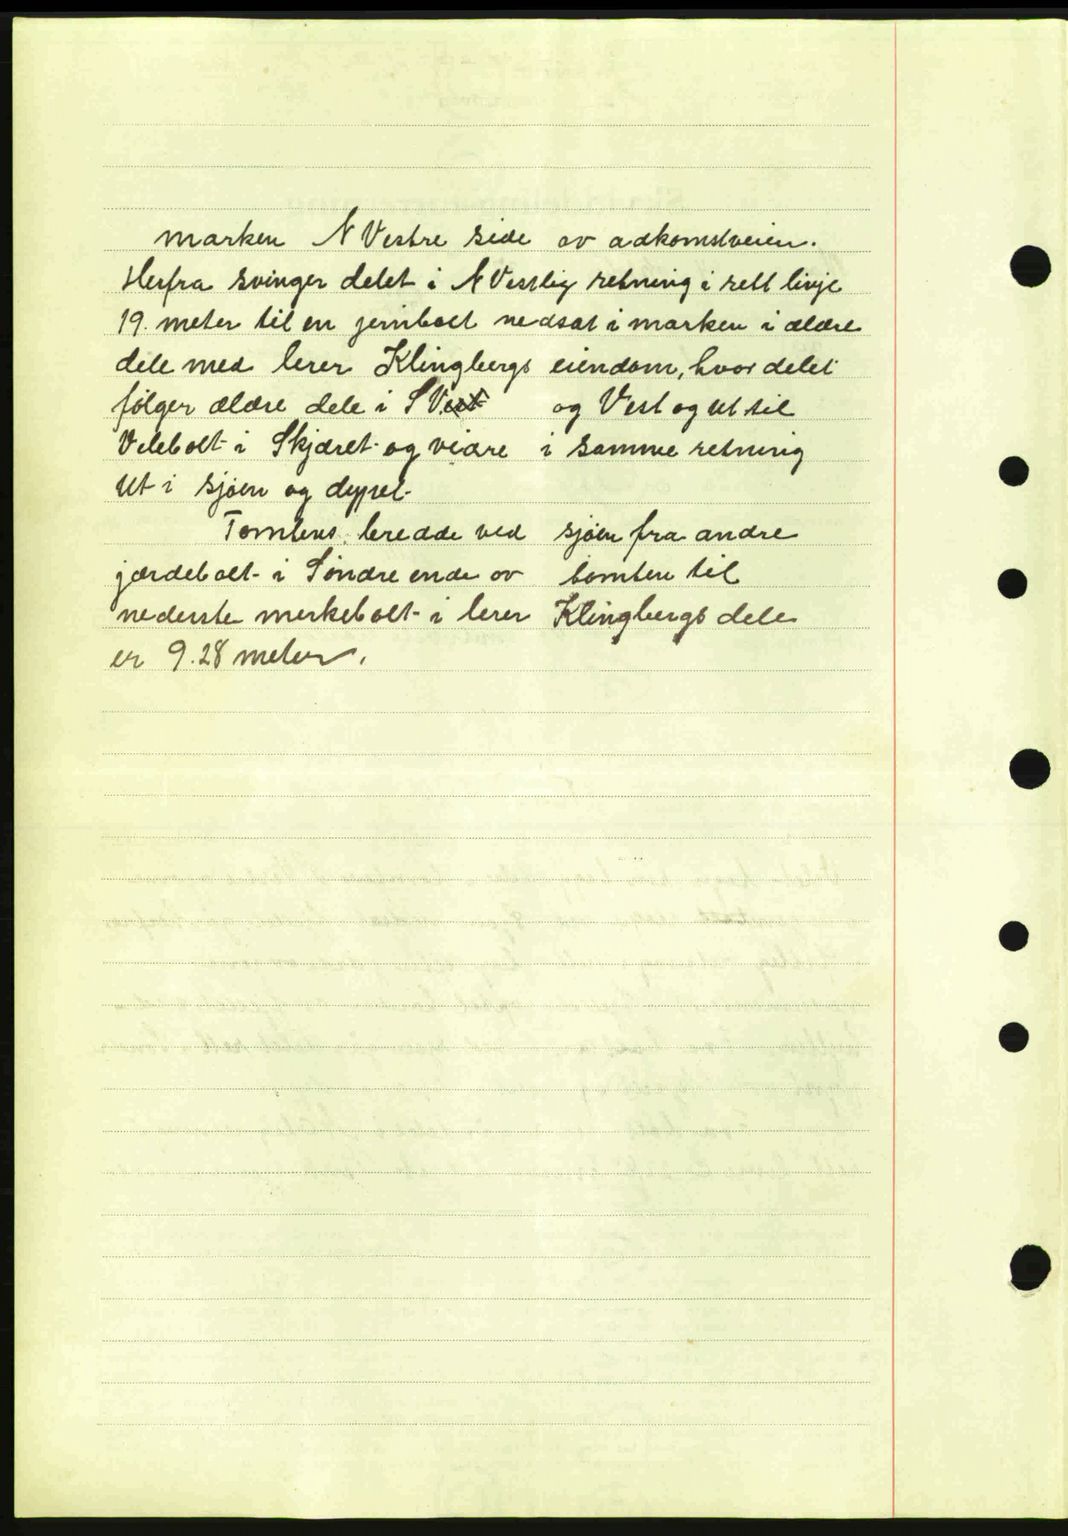 marken N Vestre side av adkomstveien.
Herfra svinger delet i N Vestlig retning i rett linje
19. meter til en jernbolt nedsat i marken i ældre
dele med lærer Klingbergs eiendom, hvor delet
følger ældre dele i S Vest og Vest og ut til
Delebolt i Skjæret og vidre i samme retning
ut i sjøen og dypet.
Tomtens bredde ved sjøen fra andre
gjærdebolt i Søndre ende av tomten til
nederste merkebolt i lærer Klingbergs dele
er 9.28 meter.